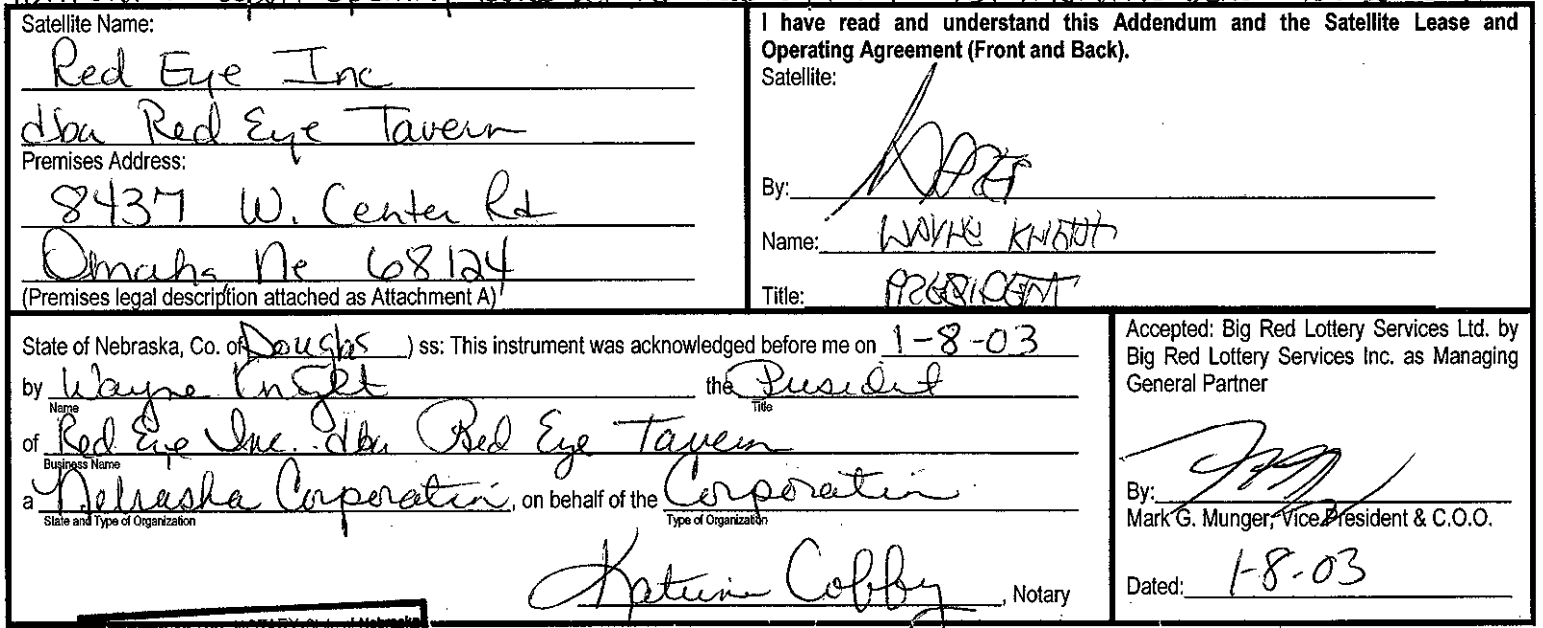 Satellite Name:
Red Eye Inc
dba Red Eye Tavern
Premises Address:
8437 W. Center Rd
Omaha Ne 68124
(Premises legal description attached as Attachment A)
I have read and understand this Addendum and the Satellite Lease and
Operating Agreement (Front and Back).
Satellite:
By:
Name: WAYNE KNIGHT
Title: PRESIDENT
State of Nebraska, Co. of Douglas ) ss: This instrument was acknowledged before me on 1-8-03
by Wayne Knight the President
Name Title
of Red Eye Inc. dba Red Eye Tavern
Business Name
a Nebraska Corporation, on behalf of the Corporation
State and Type of Organization Type of Organization
Cobby, Notary
Accepted: Big Red Lottery Services Ltd. by
Big Red Lottery Services Inc. as Managing
General Partner
By:
Mark G. Munger, Vice President & C.O.O.
Dated: 1-8-03